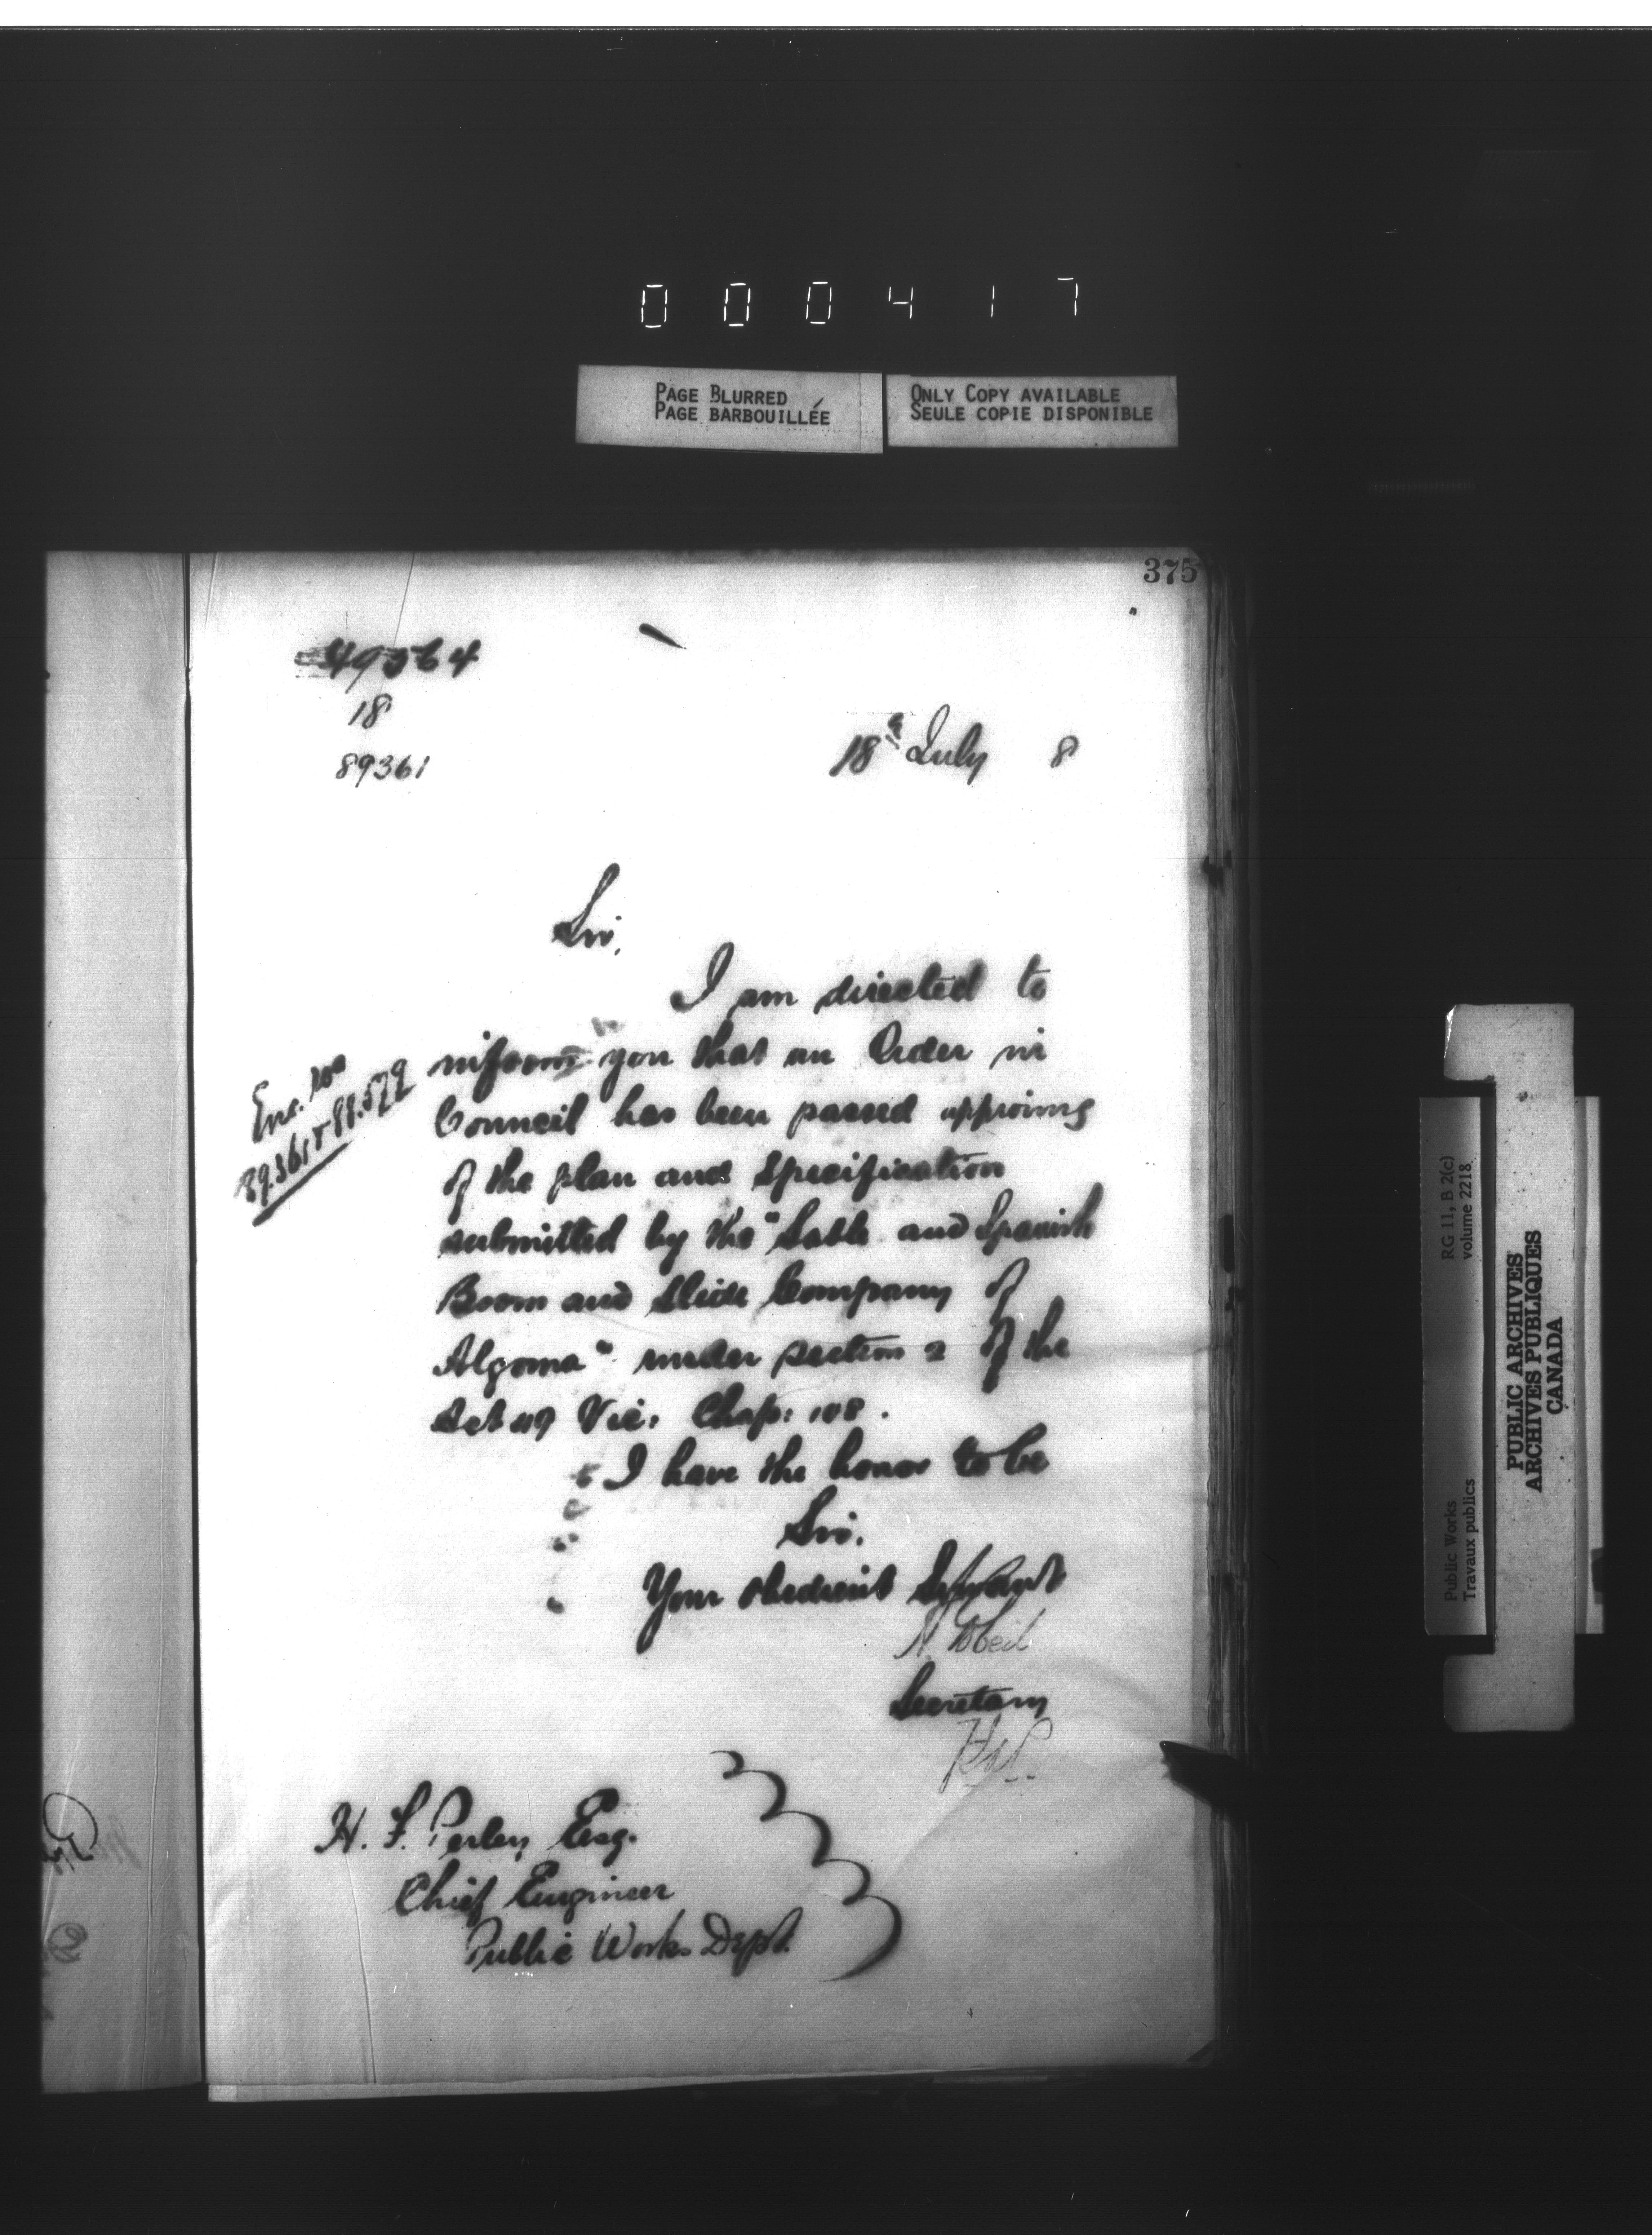 000417
PAGE BLURRED
PAGE BARBOUILLÉE
ONLY COPY AVAILABLE
SEULE COPIE DISPONIBLE
375
18
89361
18th July 8
Sir,
I am directed to
inform you that an Order in
Council has been passed approving
of the plan and Specification
submitted by the "Sable and Spanish
Boom and Slide Company of
Algoma" under section 2 of the
Act 49 Vic: Chap: 108.
Enc. Nos
I have the honor to be
Sir,
Your obedient Servant
Secretary
H. F. Perley Esq.
Chief Engineer
Public Works Dept.
Public Works
Travaux publics
RG 11, B 2(c)
volume 2218
PUBLIC ARCHIVES
ARCHIVES PUBLIQUES
CANADA